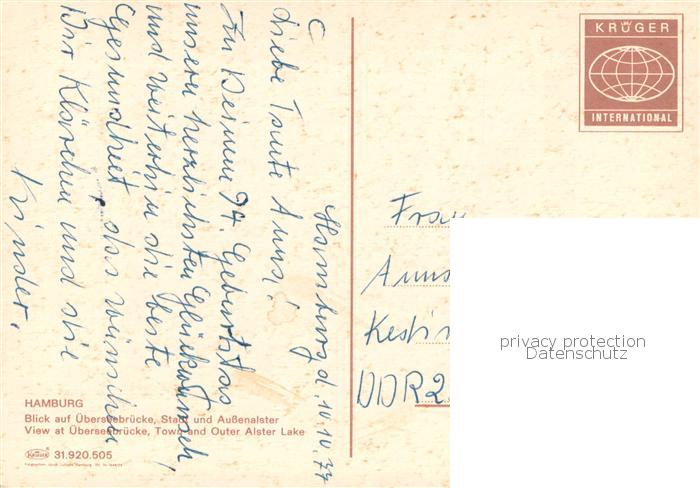 Hamburg d. 10.10.77
Liebe Tante Anna!
Zu Deinem 94. Geburtstag
unsern herzlichsten Glückwunsch,
und weiterhin die beste
Gesundheit, das wünschen
Dir Klärchen und die
Kinder.
KRÜGER
INTERNATIONAL
Frau
Anna
DDR 2
privacy protection
Datenschutz
HAMBURG
Blick auf Überseebrücke, Stadt und Außenalster
View at Überseebrücke, Town and Outer Alster Lake
KRÜGER 31.920.505